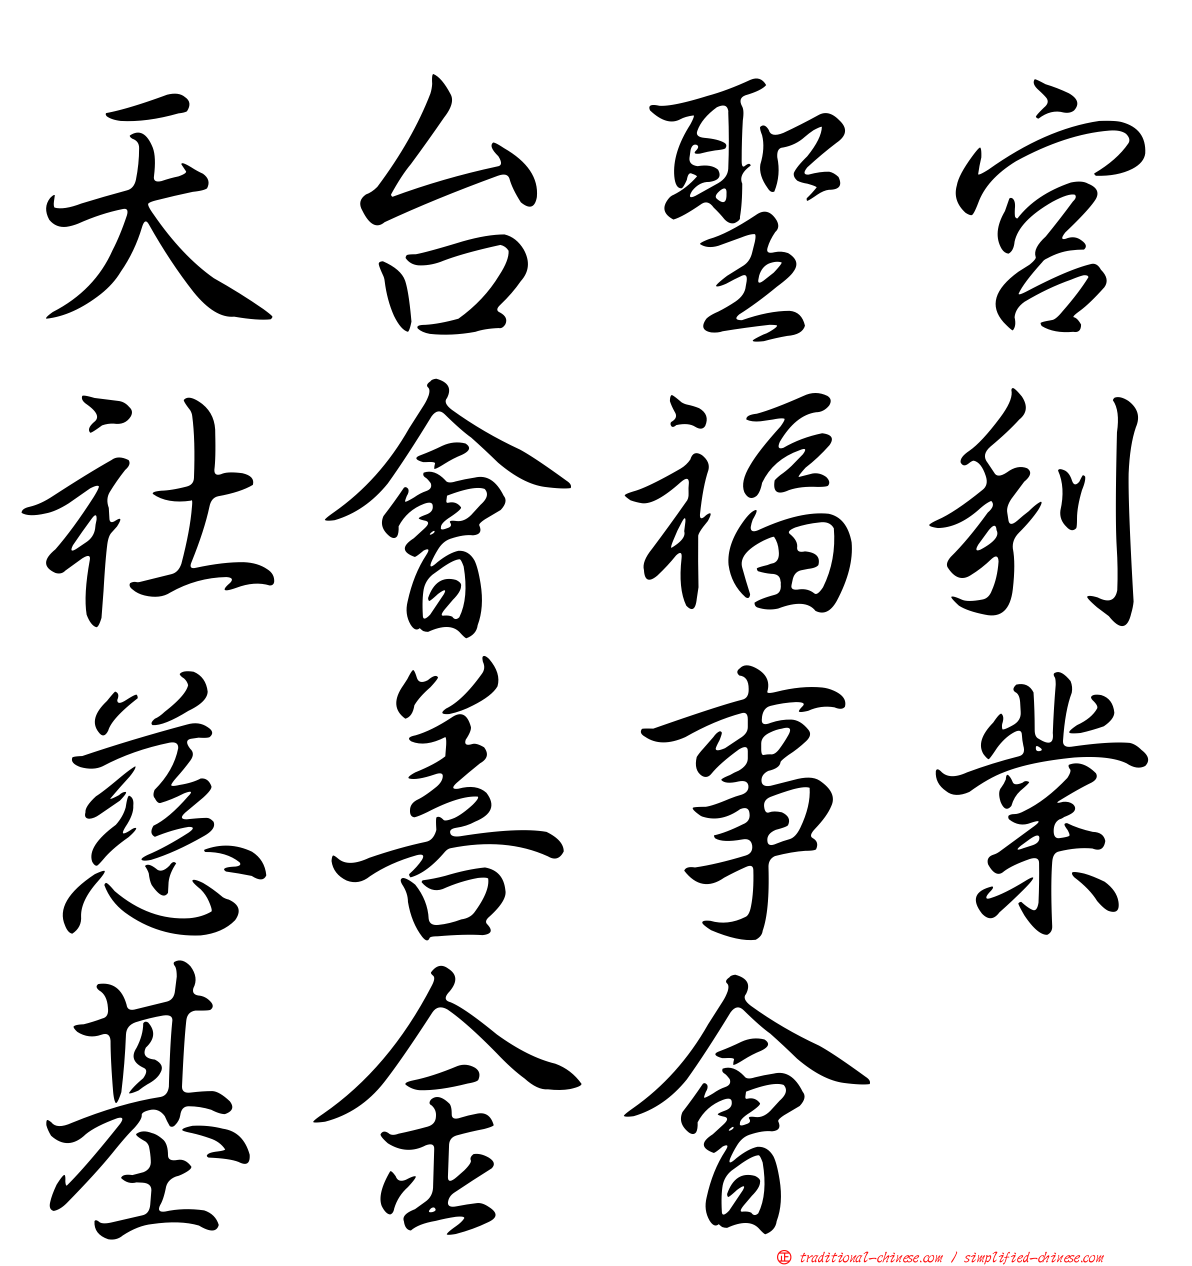 天台聖宮
社會福利
慈善事業
基金會
正 traditional-chinese.com / simplified-chinese.com